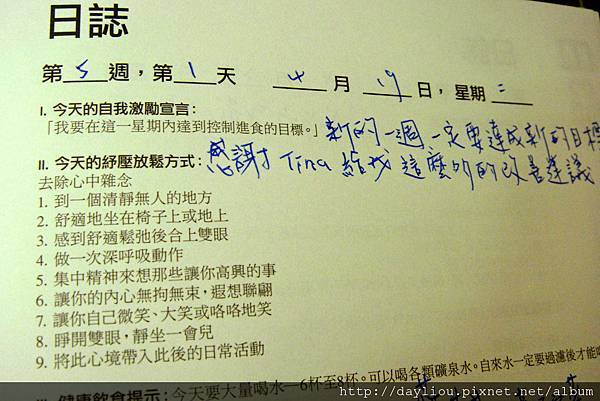 日誌
第 5 週，第 1 天 4 月 19 日，星期 二
I. 今天的自我激勵宣言：
「我要在這一星期內達到控制進食的目標。」新的一週一定要達成新的目標
II. 今天的紓壓放鬆方式：感謝 Tina 給我這麼的改善建議
去除心中雜念
1. 到一個清靜無人的地方
2. 舒適地坐在椅子上或地上
3. 感到舒適鬆弛後合上雙眼
4. 做一次深呼吸動作
5. 集中精神來想那些讓你高興的事
6. 讓你的內心無拘無束，遐想聯翩
7. 讓你自己微笑、大笑或咯咯地笑
8. 睜開雙眼，靜坐一會兒
9. 將此心境帶入此後的日常活動
健康飲食提示：今天要大量喝水—6杯至8杯。可以喝各類礦泉水。自來水一定要過濾後才能
http://dayliou.pixnet.net/album